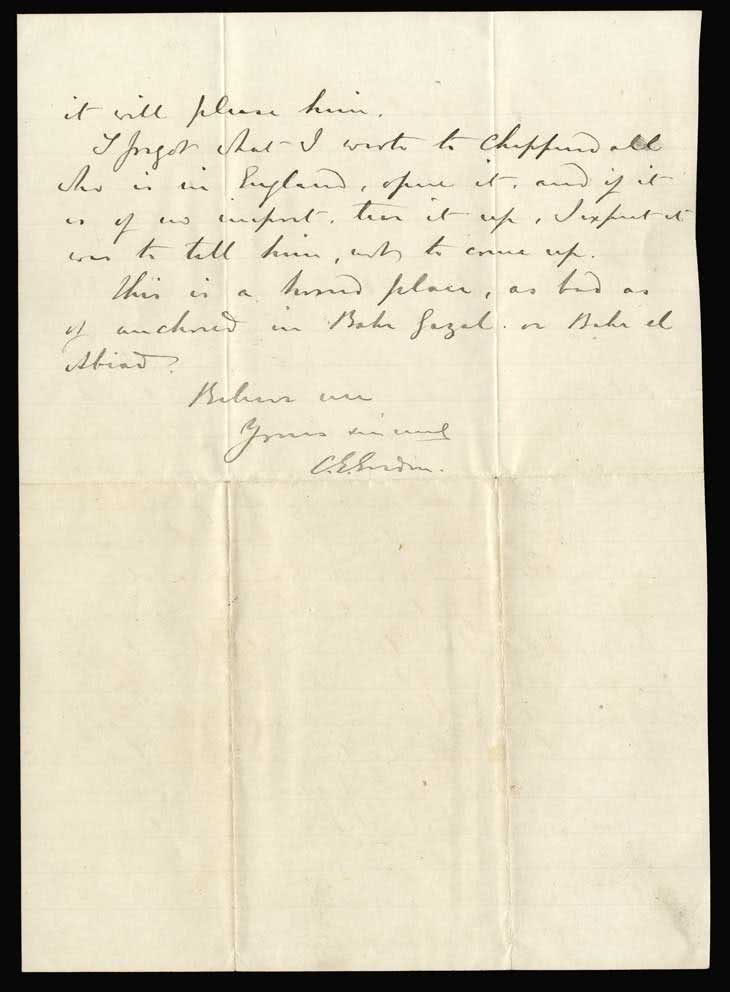 it will please him.
I forgot that I wrote to Chippendall
who is in England, open it, and if it
is of no import, tear it up, I expect it
was to tell him, not to come up.
This is a horrid place, as bad as
if anchored in Bahr Gazal. or Bahr el
Abiad.
Believe me
Yours sincerely
C.E.Gordon.